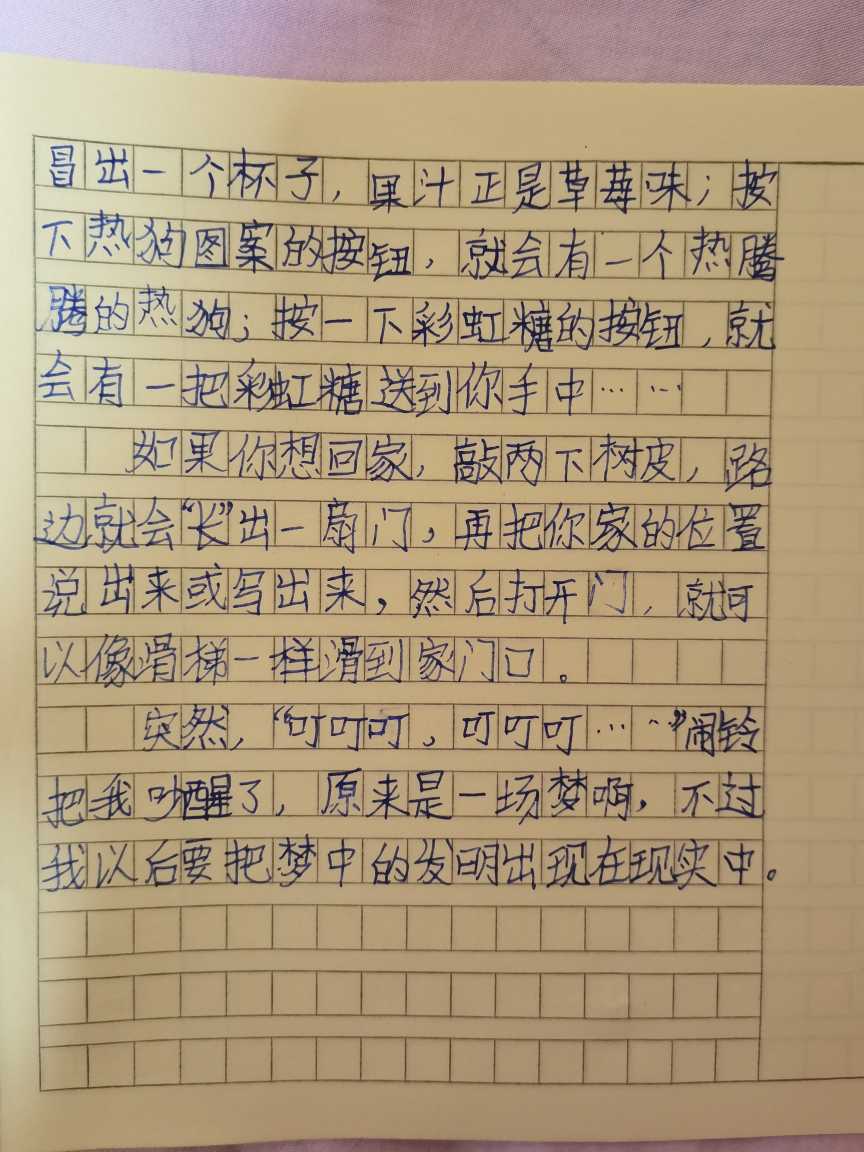 冒出一个杯子，果汁正是草莓味；按
下热狗图案的按钮，就会有一个热腾
腾的热狗；按一下彩虹糖的按钮，就
会有一把彩虹糖送到你手中……
如果你想回家，敲两下树皮，路
边就会“长”出一扇门，再把你家的位置
说出来或写出来，然后打开门，就可
以像滑梯一样滑到家门口。
突然，“叮叮叮，叮叮叮……”闹铃
把我吵醒了，原来是一场梦啊，不过
我以后要把梦中的发明出现在现实中。